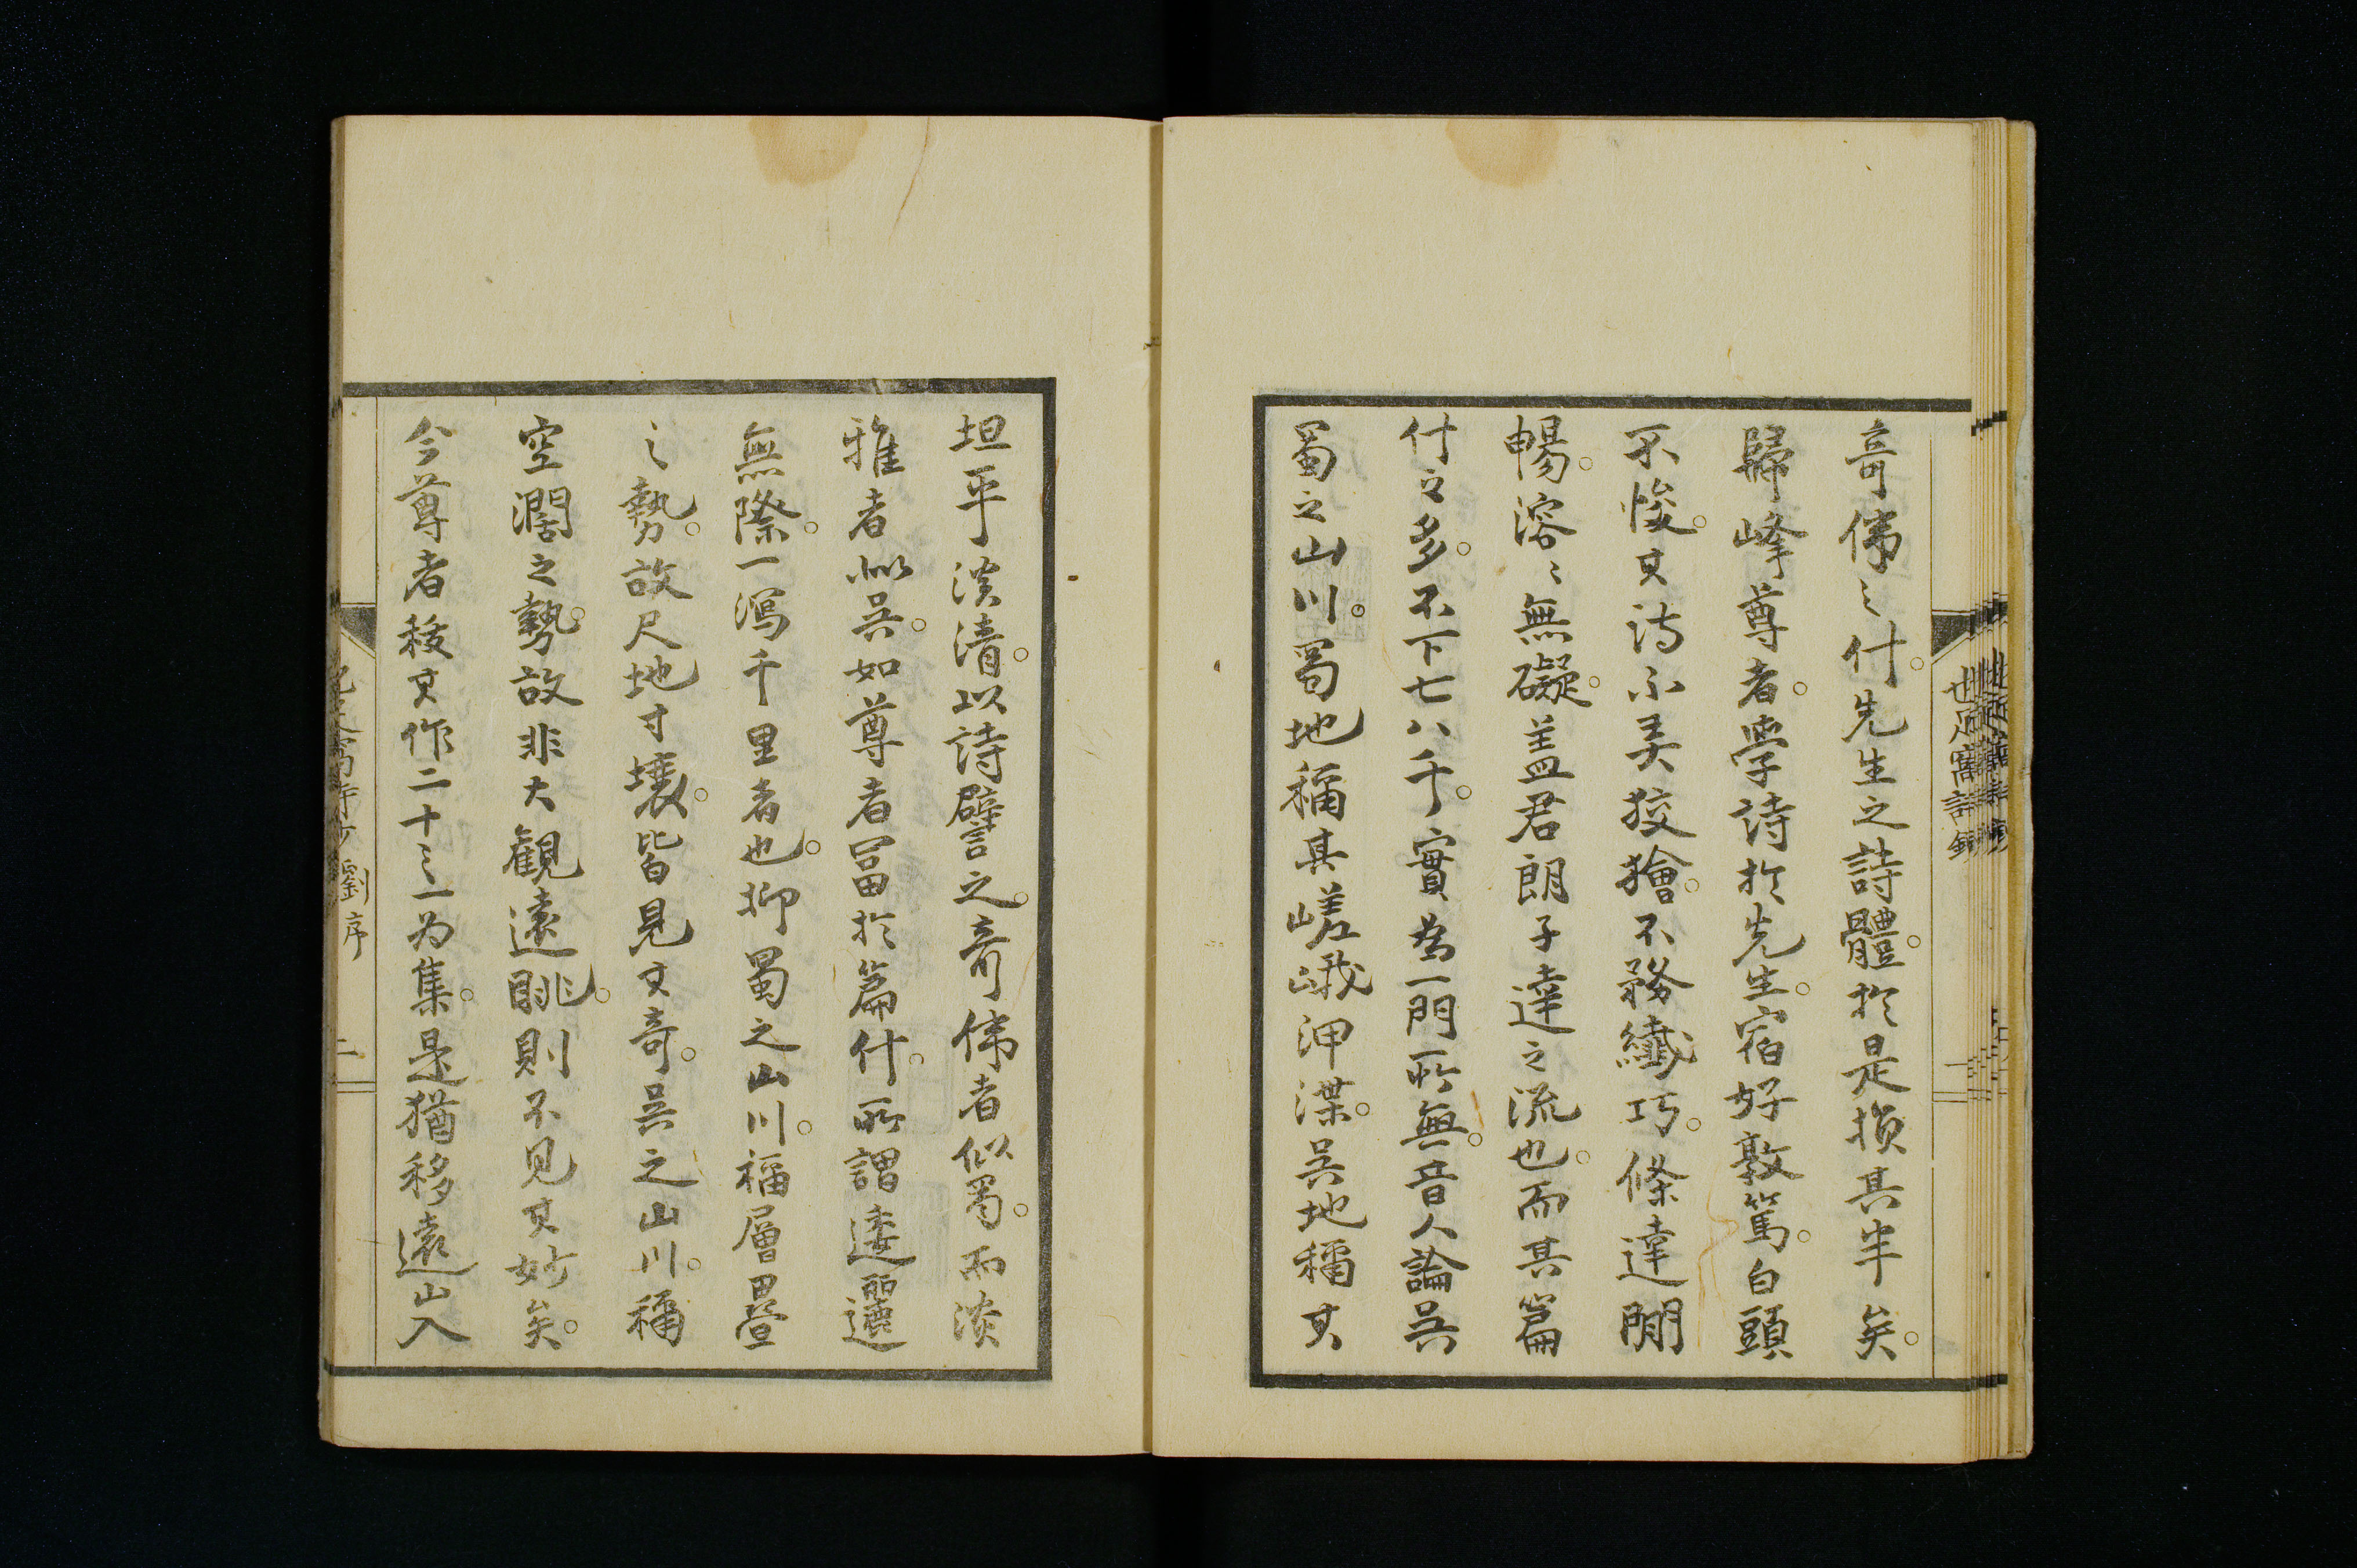 奇偉之什。先生之詩體。於是損其半矣。
歸峰尊者。學詩於先生。宿好敦篤。白頭
不悛。其詩不美狡獪。不務纖巧。條達開
暢。溶〻無礙。蓋君朗子達之流也。而其篇
什之多。不下七八千。實為一門所無。昔人論吳
蜀之山川。蜀地稱其嵯峨泙渫。吳地稱其
坦平淡清。以詩譬之。奇偉者似蜀。而淡
雅者似吳。如尊者冨於篇什。所謂逶邐
無際。一瀉千里者也。抑蜀之山川。福層疊
之勢。故尺地寸壤。皆見其奇。吳之山川。稱
空濶之勢。故非大觀遠眺。則不見其妙矣。
今尊者稡其作二十之一為集。是猶移遠山入
劉序
二